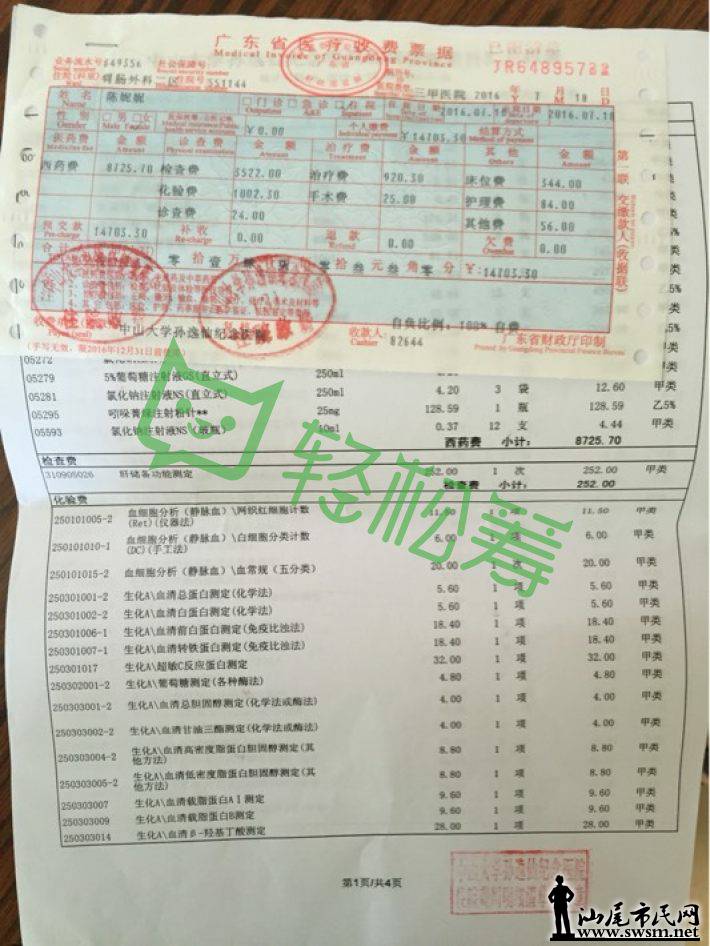 广东省医疗收费票据
Medical Invoice of Guangdong Province
业务流水号 649556 社会保障号:
JR6489572
住院(科室) 胃肠外科一区 住院号 551144
三甲医院 2016 年 7 月 18 日
姓名 Name 陈妮妮
门诊 Outpatient 急诊 A&E 住院 Inpatient
2016.07.18
性别 Gender 男 Male 女
¥0.00
个人缴费 Individual payment ¥14703.30
结算方式 Method of payment
医药费 Medicine fee 金额 Amount 诊查费 Physical examination 金额 Amount 治疗费 Treatment 金额 Amount 其他 Others 金额 Amount
西药费 8725.70 检查费 3522.00 治疗费 920.30 床位费 544.00
化验费 1002.30 手术费 25.00 护理费 84.00
诊查费 24.00 其他费 56.00
预交款 Pre-charge 14703.30 补收 Re-charge 0.00 退款 Refund 0.00 欠费 Overdue 0.00
零拾壹万肆 零拾叁元叁角零分 ¥14703.30
第一联 交缴款人(收据联)
中山大学孙逸仙纪念医院
收款人 Cashier 82644
自负比例: 100% 自费
(手写无效, 限2016年12月31日前使用)
广东省财政厅印制
Printed by Guangdong Provincial Finance Bureau
05272
05279 5%葡萄糖注射液GS(直立式) 250ml
05281 氯化钠注射液NS(直立式) 250ml 4.20 3 袋 12.60 甲类
05295 吲哚菁绿注射粉针** 25mg 128.59 1 瓶 128.59 乙5%
05593 氯化钠注射液NS (玻瓶) 10ml 0.37 12 支 4.44 甲类
西药费 小计: 8725.70
检查费
310905026 肝储备功能测定 252.00 1 次 252.00 甲类
检查费 小计: 252.00
化验费
250101005-2 血细胞分析(静脉血)\网织红细胞计数(Ret)(仪器法) 11.50 1 项 11.50 甲类
250101010-1 血细胞分析(静脉血)\白细胞分类计数(DC)(手工法) 6.00 1 项 6.00 甲类
250101015-2 血细胞分析(静脉血)\血常规(五分类) 20.00 1 次 20.00 甲类
250301001-2 生化A\血清总蛋白测定(化学法) 5.60 1 项 5.60 甲类
250301002-2 生化A\血清白蛋白测定(化学法) 5.60 1 项 5.60 甲类
250301006-1 生化A\血清前白蛋白测定(免疫比浊法) 18.40 1 项 18.40 甲类
250301007-1 生化A\血清转铁蛋白测定(免疫比浊法) 18.40 1 项 18.40 甲类
250301017 生化A\超敏C反应蛋白测定 32.00 1 项 32.00 甲类
250302001-2 生化A\葡萄糖测定(各种酶法) 4.80 1 项 4.80 甲类
250303001-2 生化A\血清总胆固醇测定(化学法或酶法) 4.00 1 项 4.00 甲类
250303002-2 生化A\血清甘油三酯测定(化学法或酶法) 4.00 1 项 4.00 甲类
250303004-2 生化A\血清高密度脂蛋白胆固醇测定(其他方法) 8.80 1 项 8.80 甲类
250303005-2 生化A\血清低密度脂蛋白胆固醇测定(其他方法) 8.80 1 项 8.80 甲类
250303007 生化A\血清载脂蛋白AⅠ测定 9.60 1 项 9.60 甲类
250303009 生化A\血清载脂蛋白B测定 9.60 1 项 9.60 甲类
250303014 生化A\血清β-羟基丁酸测定 28.00 1 项 28.00 甲类
轻松筹
第1页/共4页
中山大学孙逸仙纪念医院
汕尾市民网
www.swsm.net